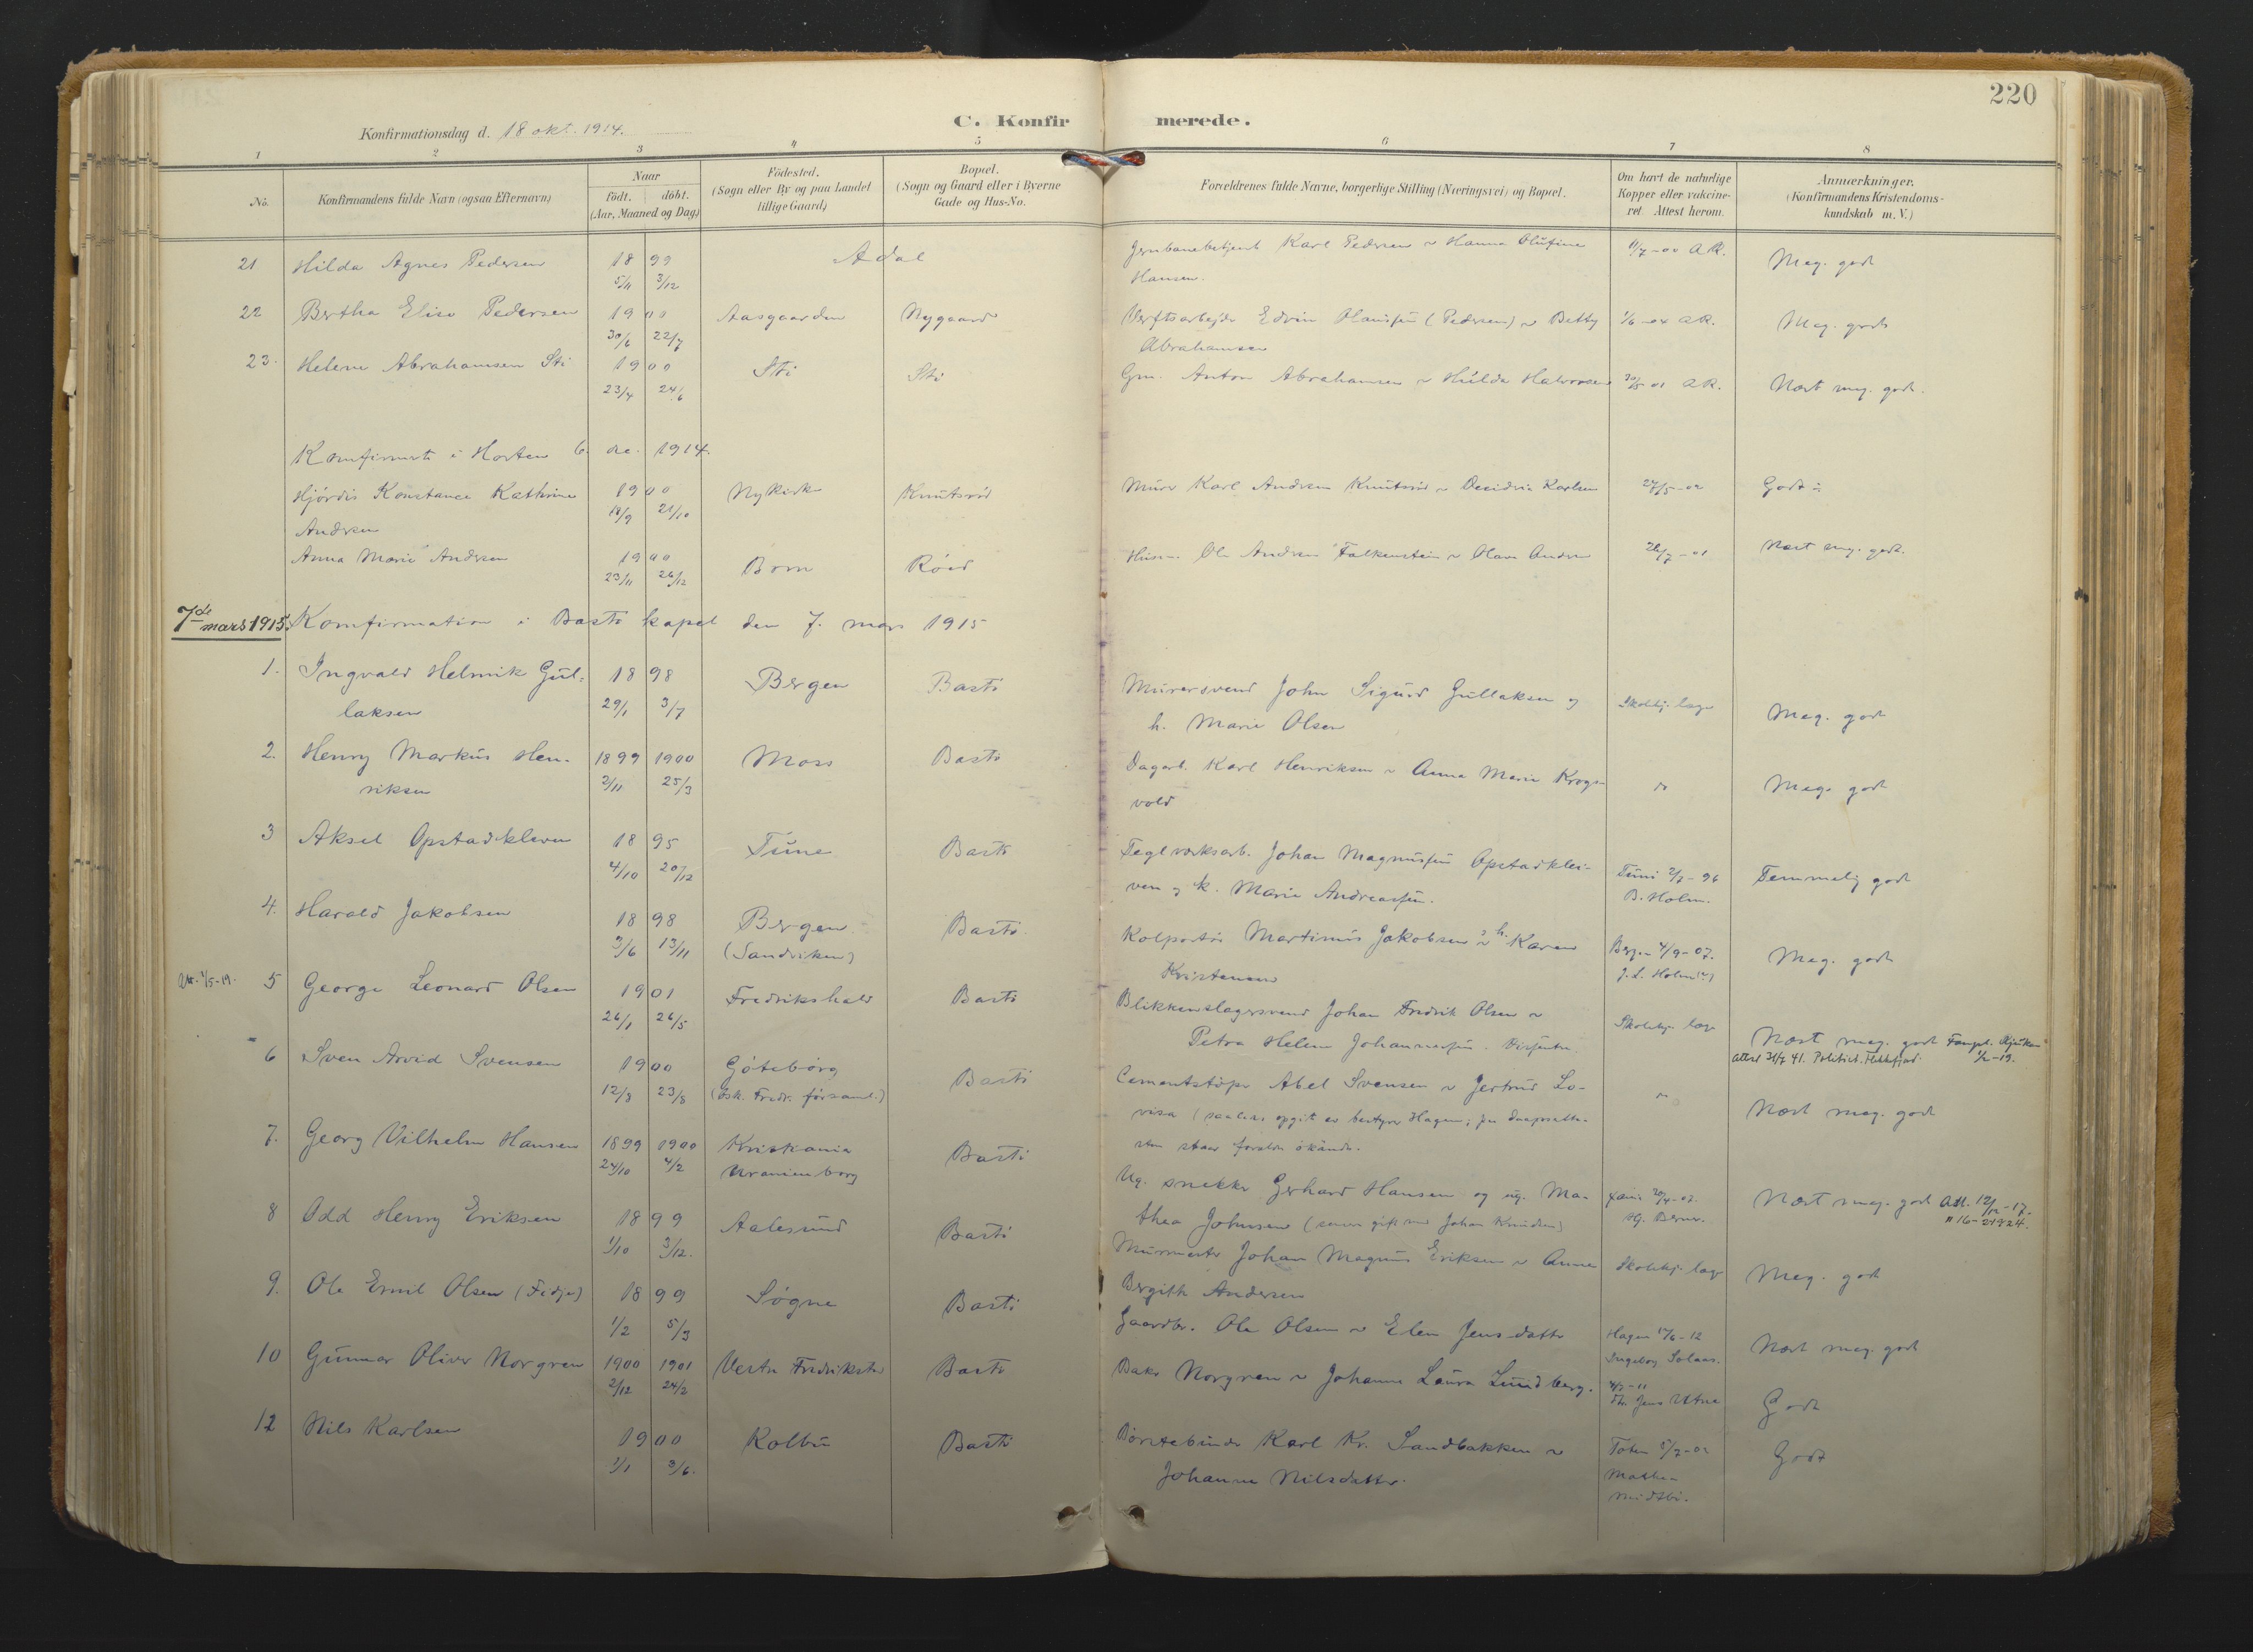 220
Konfirmationsdag d. 18 okt. 1914.
C. Konfirmerede.
1 2 3 4 5 6 7 8
No.
Konfirmandens fulde Navn (ogsaa Efternavn)
Naar
födt. döbt.
(Aar, Maaned og Dag)
Födested.
(Sogn eller By og paa Landet
tillige Gaard)
Bopæl.
(Sogn og Gaard eller i Byerne
Gade og Hus-No.
Forældrenes fulde Navne, borgerlige Stilling (Næringsvei) og Bopæl.
Om havt de naturlige
Kopper eller vakcine-
ret. Attest herom.
Anmærkninger.
(Konfirmandens Kristendoms-
kundskab m. V.)
21 Hilda Agnes Pedersen 1899 Adal Jernbanebetjent Karl Pedersen & Hanna Olufine 11/7-00 AR. Meg. godt
5/11 3/12 Hansen.
22 Bertha Elise Pedersen 1900 Aasgaarden Nygaard Verftsarbejder Edvin (Pedersen) & Betty 1/6-04 AR. Meg. godt
30/6 22/7 Abrahamsen
23. Helene Abrahamsen Sti 1900 Sti Sti Gm. Anton Abrahamsen & Hilda Halvorsen AR. Næst meg. godt.
23/4 24/6
Konfirmert i Horten 6. de. 1914.
Hjördis Konstance Kathrine 1900 Nykirke Knutsröd Murer Karl Andersen Knutsröd & Karlsen 27/5-02 Godt
18/9 21/10
Andersen
Anna Marie Andersen 1900 Born Röed Ole Andersen Falkenstein & Andersen 26/7-01 Næst meg. godt.
23/11 26/12
7de mars 1915. Komfirmation i Bastö kapel den 7. mars 1915
1. Ingvald Helmik Gul- 1898 Bergen Bastö Murersvend John Sigurd Gullaksen og Skolekj. læge Meg. godt
laksen 29/1 3/7 h. Marie Olsen
2. Henry Markus Hen- 1899 1900 Moss Bastö Dagarb. Karl Henriksen & Anna Marie Krogs- do Meg. godt
riksen 2/11 25/3 vold
3 Aksel Opstadkleven 1895 Tune Bastö Teglverksarb. Johan Magnussen Opstadklei- Tune 2/7-96 Temmelig godt
4/10 20/12 ven og k. Marie Andreassen. B. Holm.
4. Harald Jakobsen 1898 Bergen Bastö. Kolportör Martinus Jakobsen & h. Karen Bergen 4/9-07. Meg. godt
3/6 13/11 (Sandviken) Kristensen J. L. Holm(?)
Utr. 1/5-19. 5 George Leonard Olsen 1901 Fredrikshald Bastö Blikkenslagersvend Johan Fredrik Olsen & Skolekj. læge Næst meg. godt Fængsl. Rjukan
26/1 26/5 Petra Helene Johannessen. Dissenter attest 31/7 41. Politiet. Flekkefjord. 1/2-19.
6 Sven Arvid Svensen 1900 Göteborg Bastö Cementstöper Abel Svensen & Jertrud Lo- do Næst meg. godt
12/3 23/8 (Osk. Fredr. församl.) visa (saaledes opgit av bestyrer Hagen; paa daapsatte-
sten staar foreldre okände.
7. Georg Vilhelm Hansen 1899 1900 Kristiania Bastö Ug. snekker Gerhard Hansen og ug. Ma- Xania 20/4-07. Næst meg. godt Att. 12/12-17.
24/10 4/2 Uranienborg thea Johnsen (senere gift med Johan Knudsen) " 16-2 1924.
8 Odd Henry Eriksen 1899 Aalesund Bastö Murmester Johan Magnus Eriksen & Anne Skolekj. læge Meg. godt
1/10 3/12. Bergith Andersen
9. Ole Emil Olsen (Fidje) 1899 Sögne Bastö Gaardbr. Ole Olsen & Elen Jensdatter Hagen 17/6-12 Næst meg. godt
1/2 5/3 Ingeborg Solaas.
10 Gunnar Oliver Norgren 1900 1901 Vestre Fredrikstad Bastö Baker Norgren & Johanne Laura Lundberg. 4/7-11 Godt
2/12 24/2 Jens Utne
12 Nils Karlsen 1900 Kolbu Bastö Börstebinder Karl Kr. Sandbakken & Toten 5/7-02 Godt
1/1 3/6. Johanne Nilsdatter. Mathea
Midtbö.